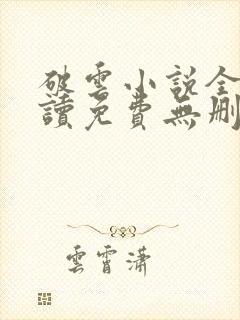 破雲小說全
讀免費無刪
雲霄瀟